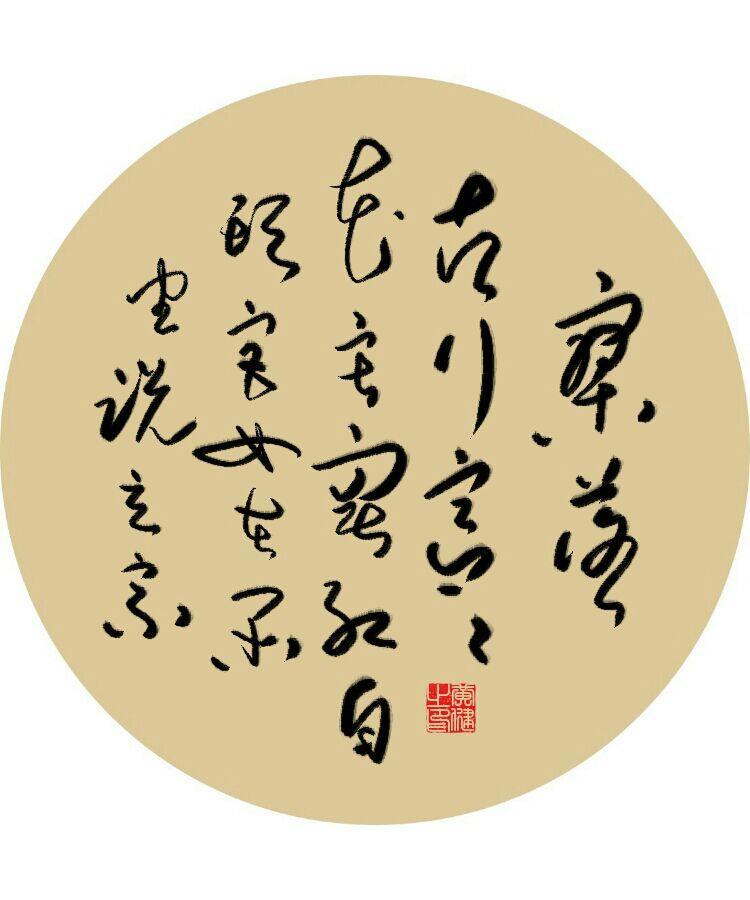 寥落
古行宫〻
花寂寞红白
头宫女在闲
坐说玄宗